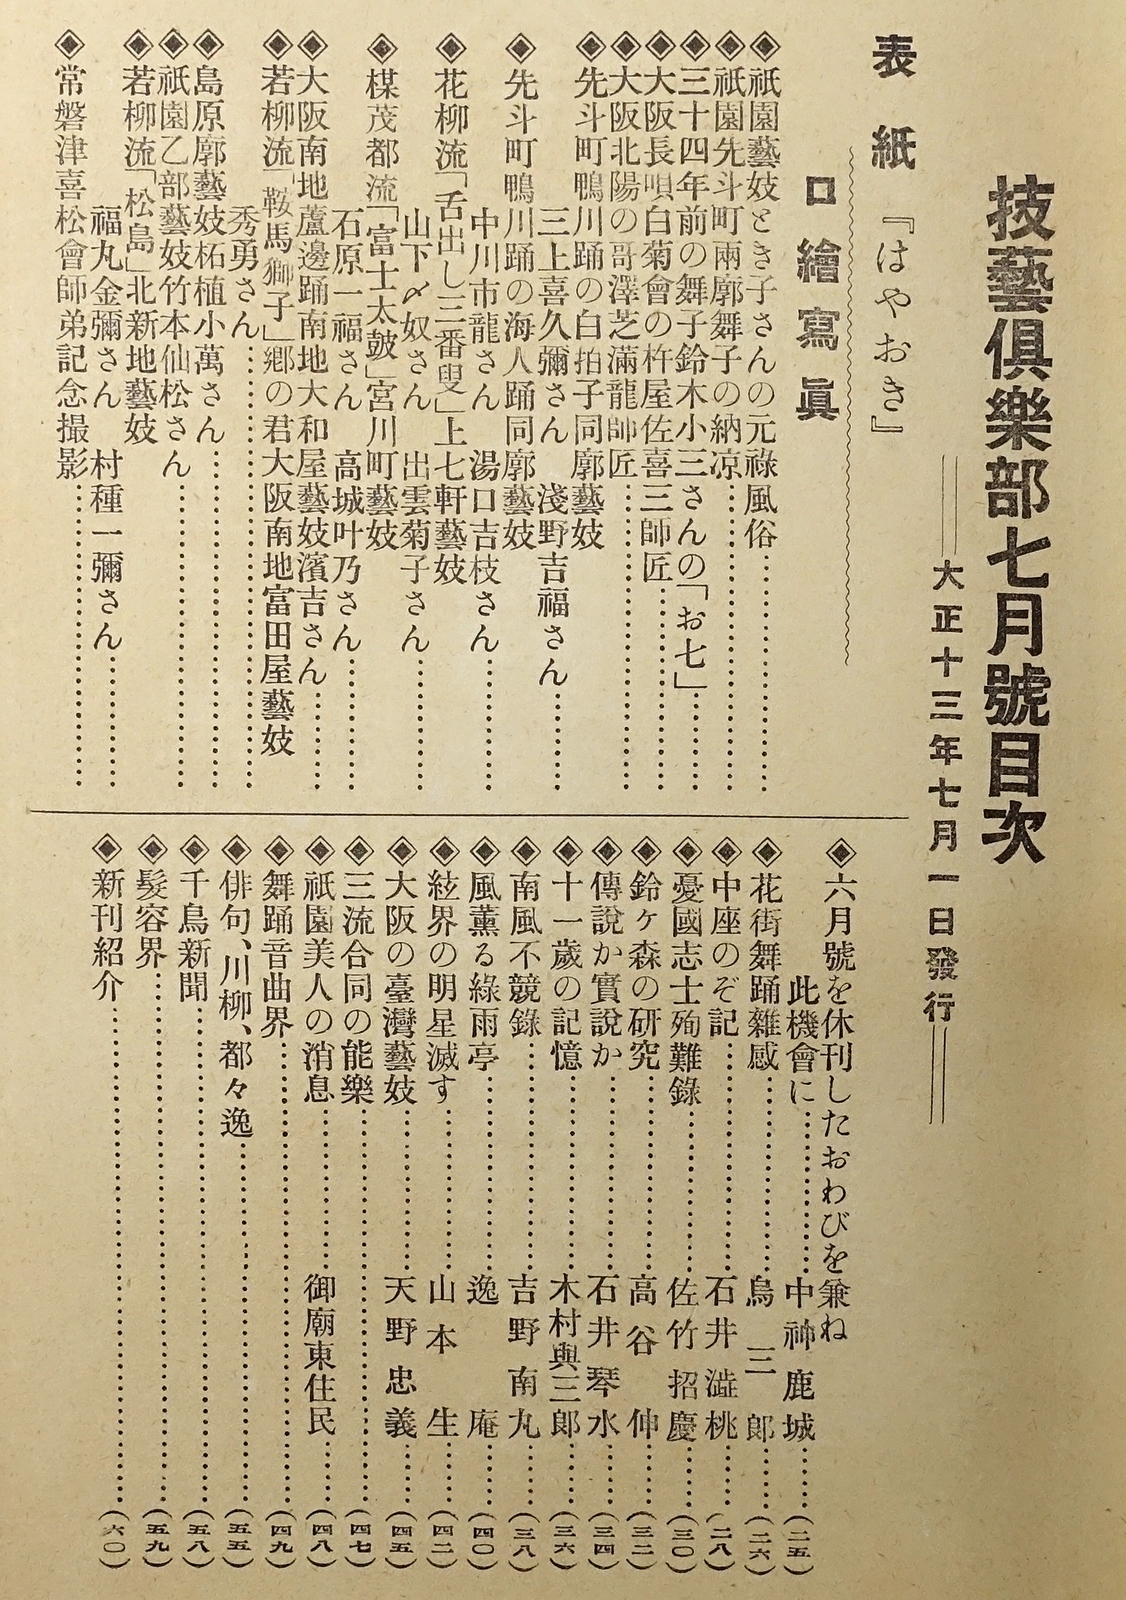 技藝倶樂部七月號目次
大正十三年七月一日發行
表紙『はやおき』
口繪寫眞
◈祇園藝妓とき子さんの元祿風俗…………
◈祇園先斗町兩廓舞子の納凉…………
◈三十四年前の舞子鈴木小三さんの「お七」…………
◈大阪長唄白菊會の杵屋佐喜三師匠…………
◈大阪北陽の哥澤芝滿龍師匠…………
◈先斗町鴨川踊の白拍子同廓藝妓
三上喜久彌さん 淺野吉福さん…………
◈先斗町鴨川踊の海人踊同廓藝妓
中川市龍さん 湯口吉枝さん…………
◈花柳流「舌出し三番叟」上七軒藝妓
山下〆奴さん 出雲菊子さん…………
◈楳茂都流「富士太皷」宮川町藝妓
石原一福さん 高城叶乃さん…………
◈大阪南地蘆邊踊南地大和屋藝妓濱吉さん…………
◈若柳流「鞍馬獅子」郷の君大阪南地富田屋藝妓
秀勇さん…………
◈島原廓藝妓柘植小萬さん…………
◈祇園乙部藝妓竹本仙松さん…………
◈若柳流「松島」北新地藝妓
福丸金彌さん 村種一彌さん…………
◈常磐津喜松會師弟記念撮影…………
◈六月號を休刊したおわびを兼ね
此機會に…………中神鹿城…………(二五)
◈花街舞踊雜感…………烏三郎…………(二六)
◈中座のぞ記…………石井澁桃…………(二八)
◈憂國志士殉難錄…………佐竹招慶…………(三〇)
◈鈴ヶ森の硏究…………高谷伸…………(三二)
◈傳說か實說か…………石井琴水…………(三四)
◈十一歲の記憶…………木村與三郎…………(三六)
◈南風不競錄…………吉野南丸…………(三八)
◈風薰る綠雨亭…………逸庵…………(四〇)
◈絃界の明星滅す…………山本生…………(四二)
◈大阪の臺灣藝妓…………天野忠義…………(四五)
◈三流合同の能樂…………(四七)
◈祇園美人の消息…………御廟東住民…………(四八)
◈舞踊音曲界…………(四九)
◈俳句、川柳、都々逸…………(五五)
◈千鳥新聞…………(五八)
◈髮容界…………(五九)
◈新刊紹介…………(六〇)